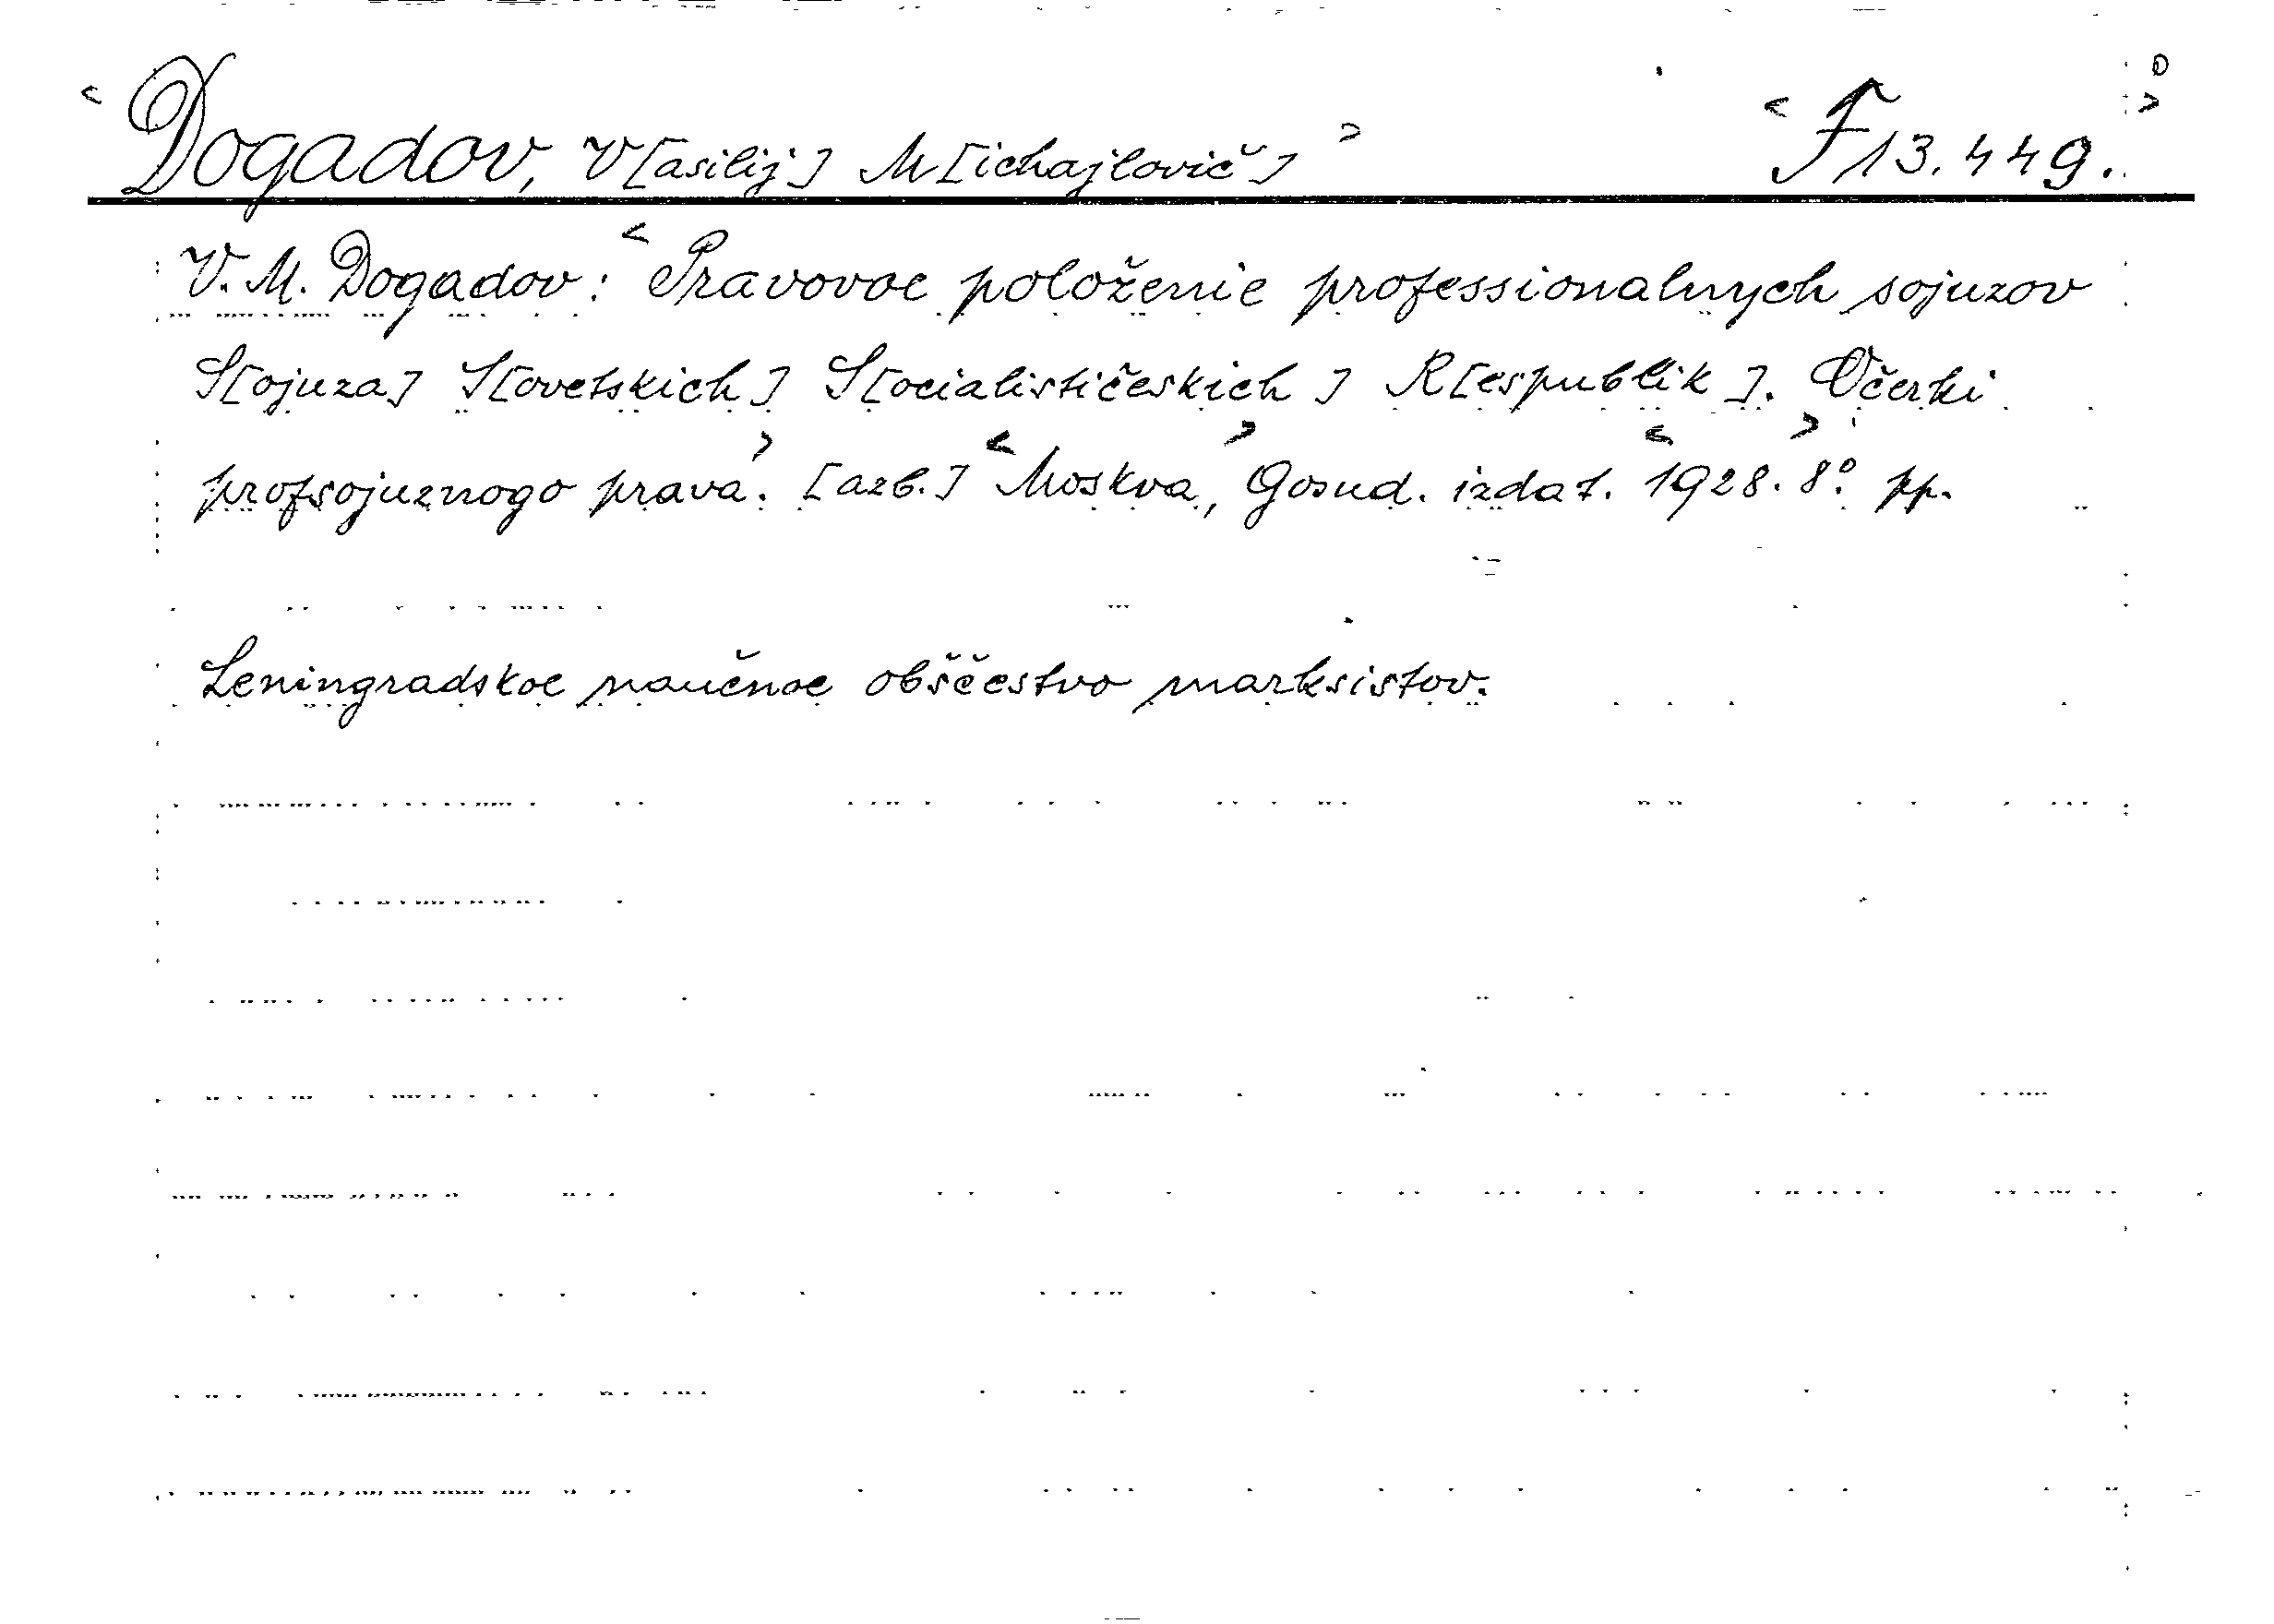 <Dogadov, V[asilij] M[ichajlovič]> <F 13.449.>
V. M. Dogadov: <Pravovoe položenie professionalnych sojuzov
S[ojuza] S[ovetskich] S[ocialističeskich] R[espublik]. Očerki
profsojuznogo prava.> [azb.] <Moskva,> Gosud. izdat. <1928.> 8° pp.
Leningradskoe naučnoe obščestvo marksistov.